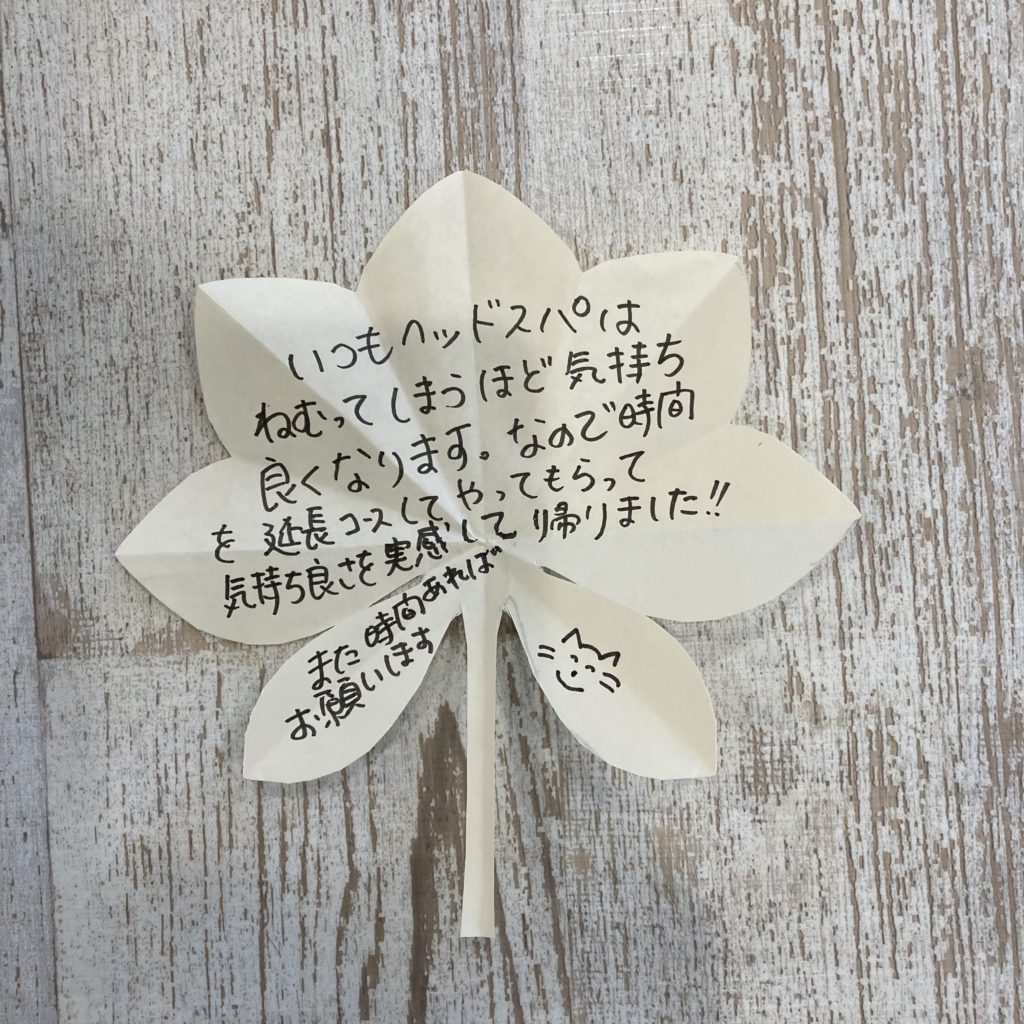 いつもヘッドスパは
ねむってしまうほど気持ち
良くなります。なので時間
を延長コースしてやってもらって
気持ち良さを実感して帰りました!!
また時間あれば
お願いします